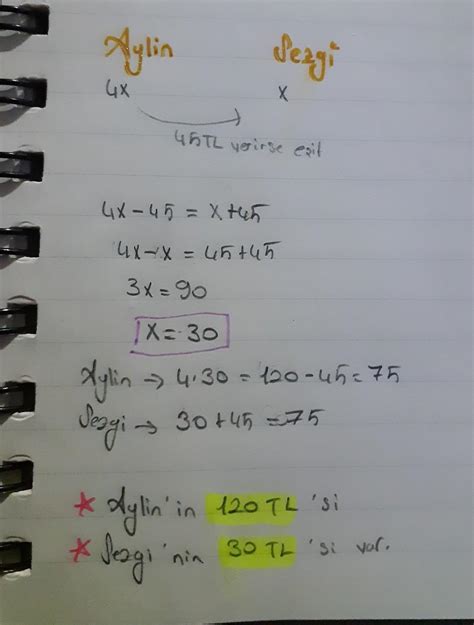 Aylin Sezgi
4x x
45TL verirse eşit
4x-45 = x+45
4x-x = 45+45
3x=90
x=30
Aylin → 4.30 = 120-45=75
Sezgi → 30+45=75
* Aylin'in 120 TL 'si
* Sezgi'nin 30 TL 'si var.